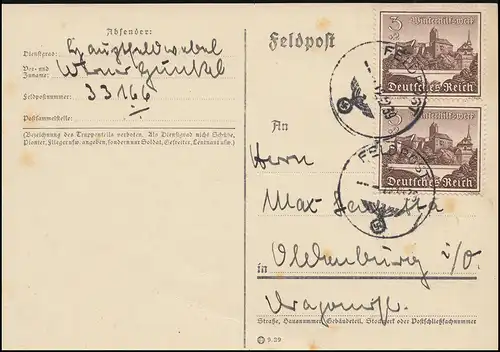 Absender:
Dienstgrad: Hauptfeldwebel
Vor- und
Zuname: Werner Gunkel
Feldpostnummer: 33166
Postsammelstelle:
(Bezeichnung des Truppenteils verboten. Als Dienstgrad nicht Schütze,
Pionier, Flieger usw. angeben, sondern nur Soldat, Gefreiter, Leutnant usw.).
Feldpost
3 Winterhilfswerk
Deutsches Reich
3 Winterhilfswerk
Deutsches Reich
FELDPOST
FELDPOST
An
Herrn
Max
in Oldenburg i/O.
Straße, Hausnummer, Gebäudeteil, Stockwerk oder Postschließfachnummer
9.39